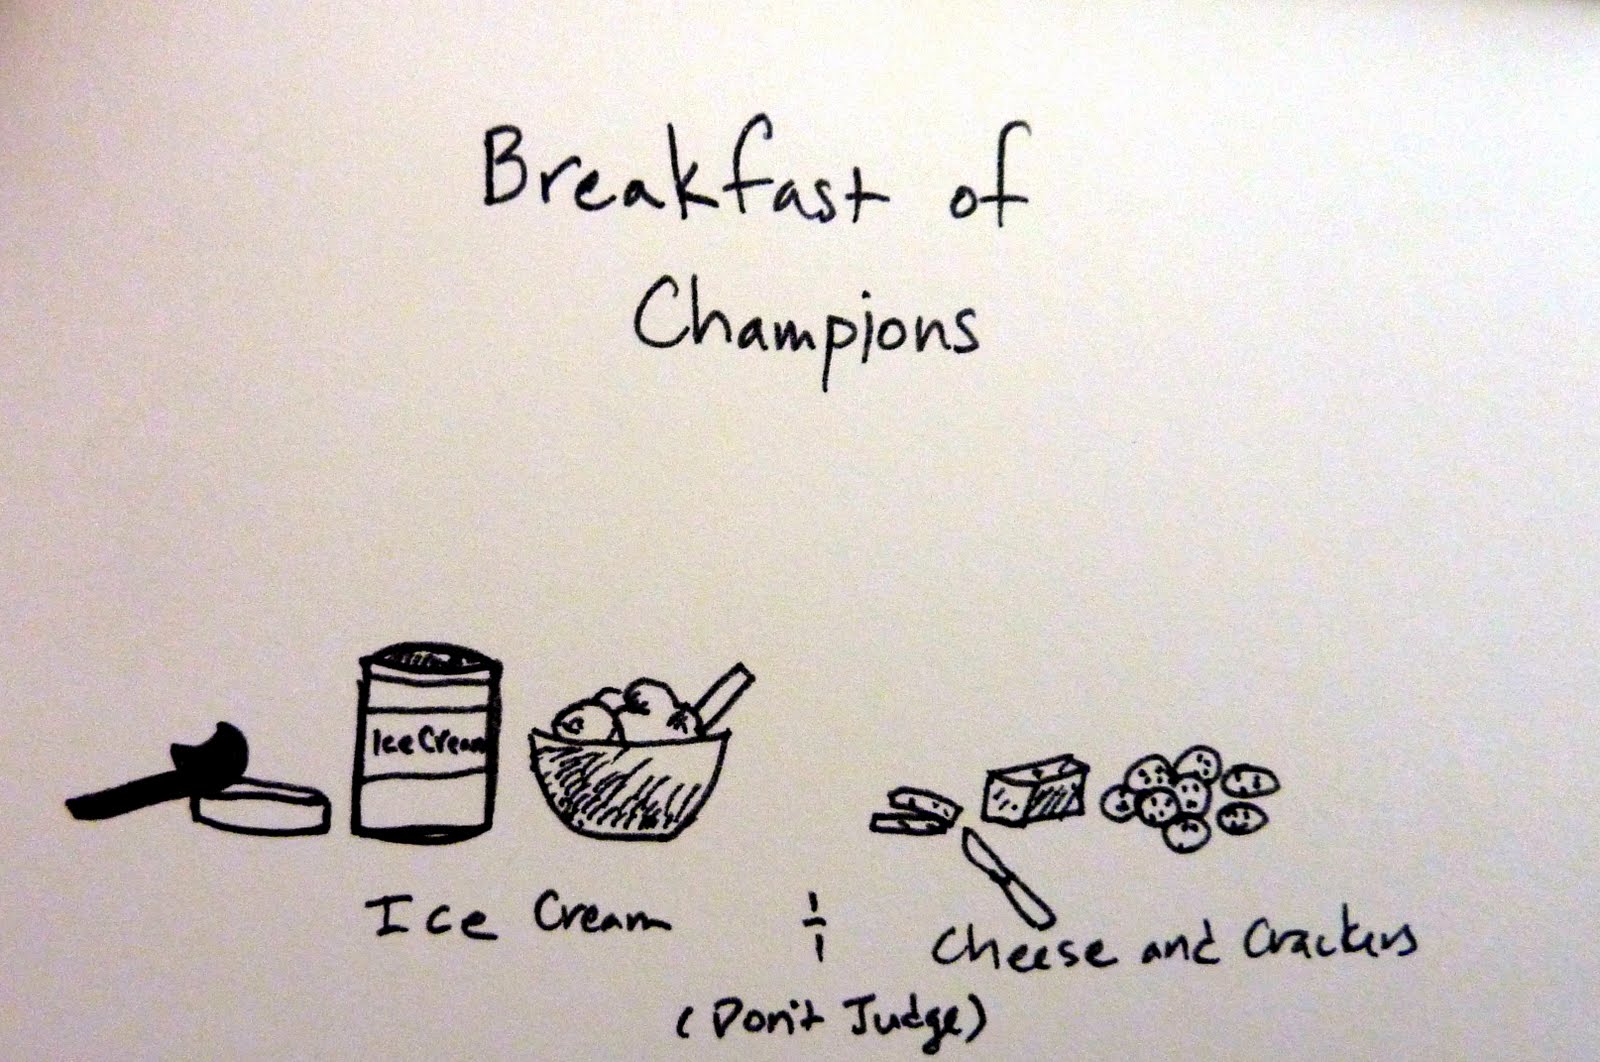 Breakfast of
Champions
Ice Cream
Ice Cream + Cheese and Crackers
(Don't Judge)